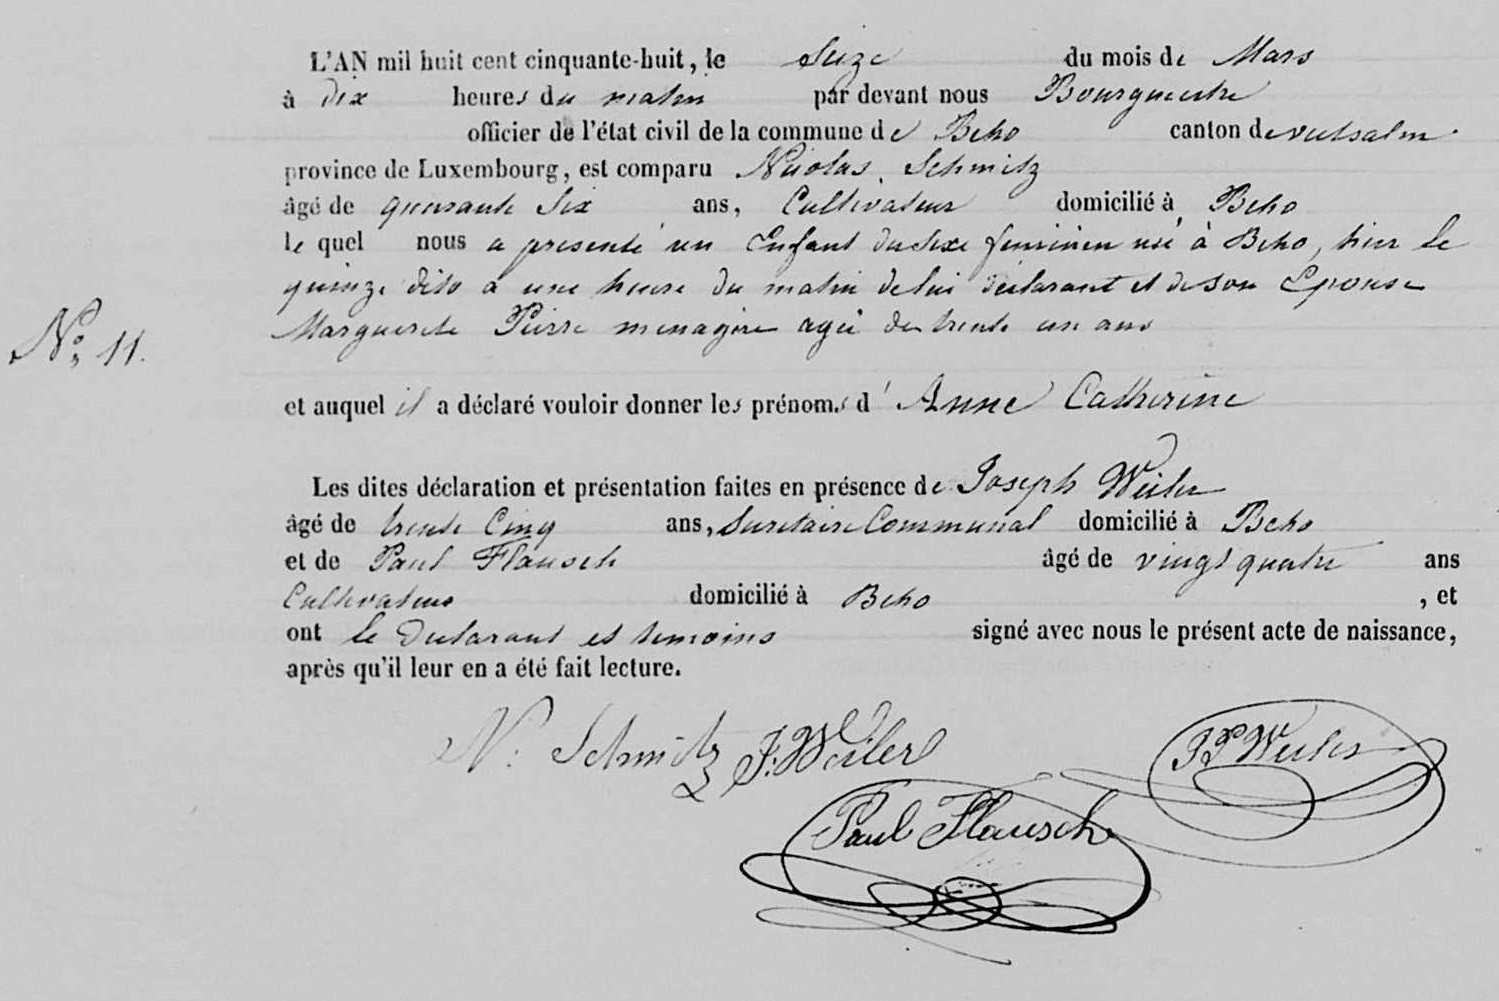 L'AN mil huit cent cinquante-huit, le Seize du mois de Mars
à dix heures du matin par devant nous Bourguestre
officier de l'état civil de la commune de Beho canton de vielsalm
province de Luxembourg, est comparu Nicolas Schmitz
âgé de quarante Six ans, Cultivateur domicilié à Beho
le quel nous a presenté un Enfant du Sexe feminien né à Beho, hier le
quinze dito à une heure du matin de lui déclarant et de son Epouse
Marguerete Pierre menagère agée de trente un ans
N° 11.
et auquel il a déclaré vouloir donner les prénoms d' Anne Catherine
Les dites déclaration et présentation faites en présence de Joseph Weiler
âgé de trente Cinq ans, Secretaire Communal domicilié à Beho
et de Paul Flausch âgé de vingt quatre ans
Cultivateur domicilié à Beho , et
ont le Declarant et temoins signé avec nous le présent acte de naissance,
après qu'il leur en a été fait lecture.
N. Schmitz J. Weiler Weiler
Paul Flausch